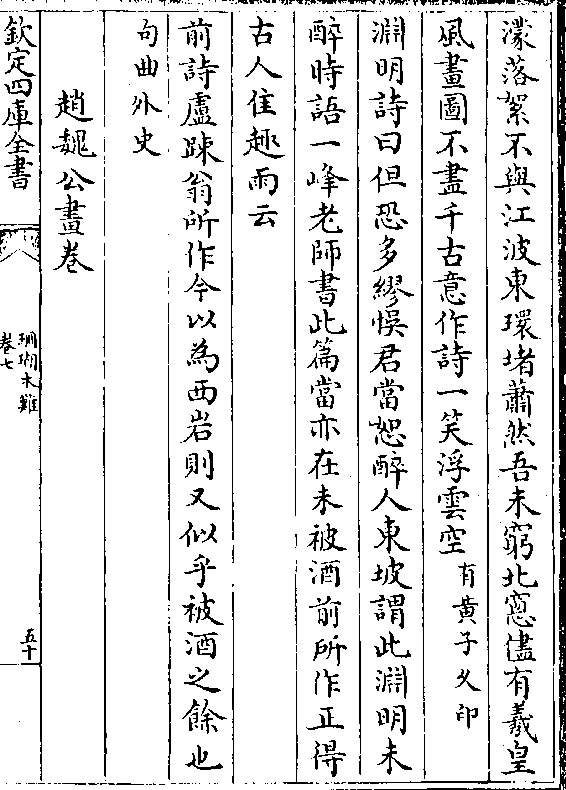 濛落絮不與江波東環堵蕭然吾未窮北窻儘有羲皇
風畫圖不盡千古意作詩一笑浮雲空有黃子久印
淵明詩曰但恐多繆悞君當恕醉人東坡謂此淵明未
醉時語一峰老師書此篇當亦在未被酒前所作正得
古人佳趣雨云
前詩盧踈翁所作今以為西岩則又似乎被酒之餘也
句曲外史
趙魏公畫卷
欽定四庫全書
珊瑚木難
卷七
五十